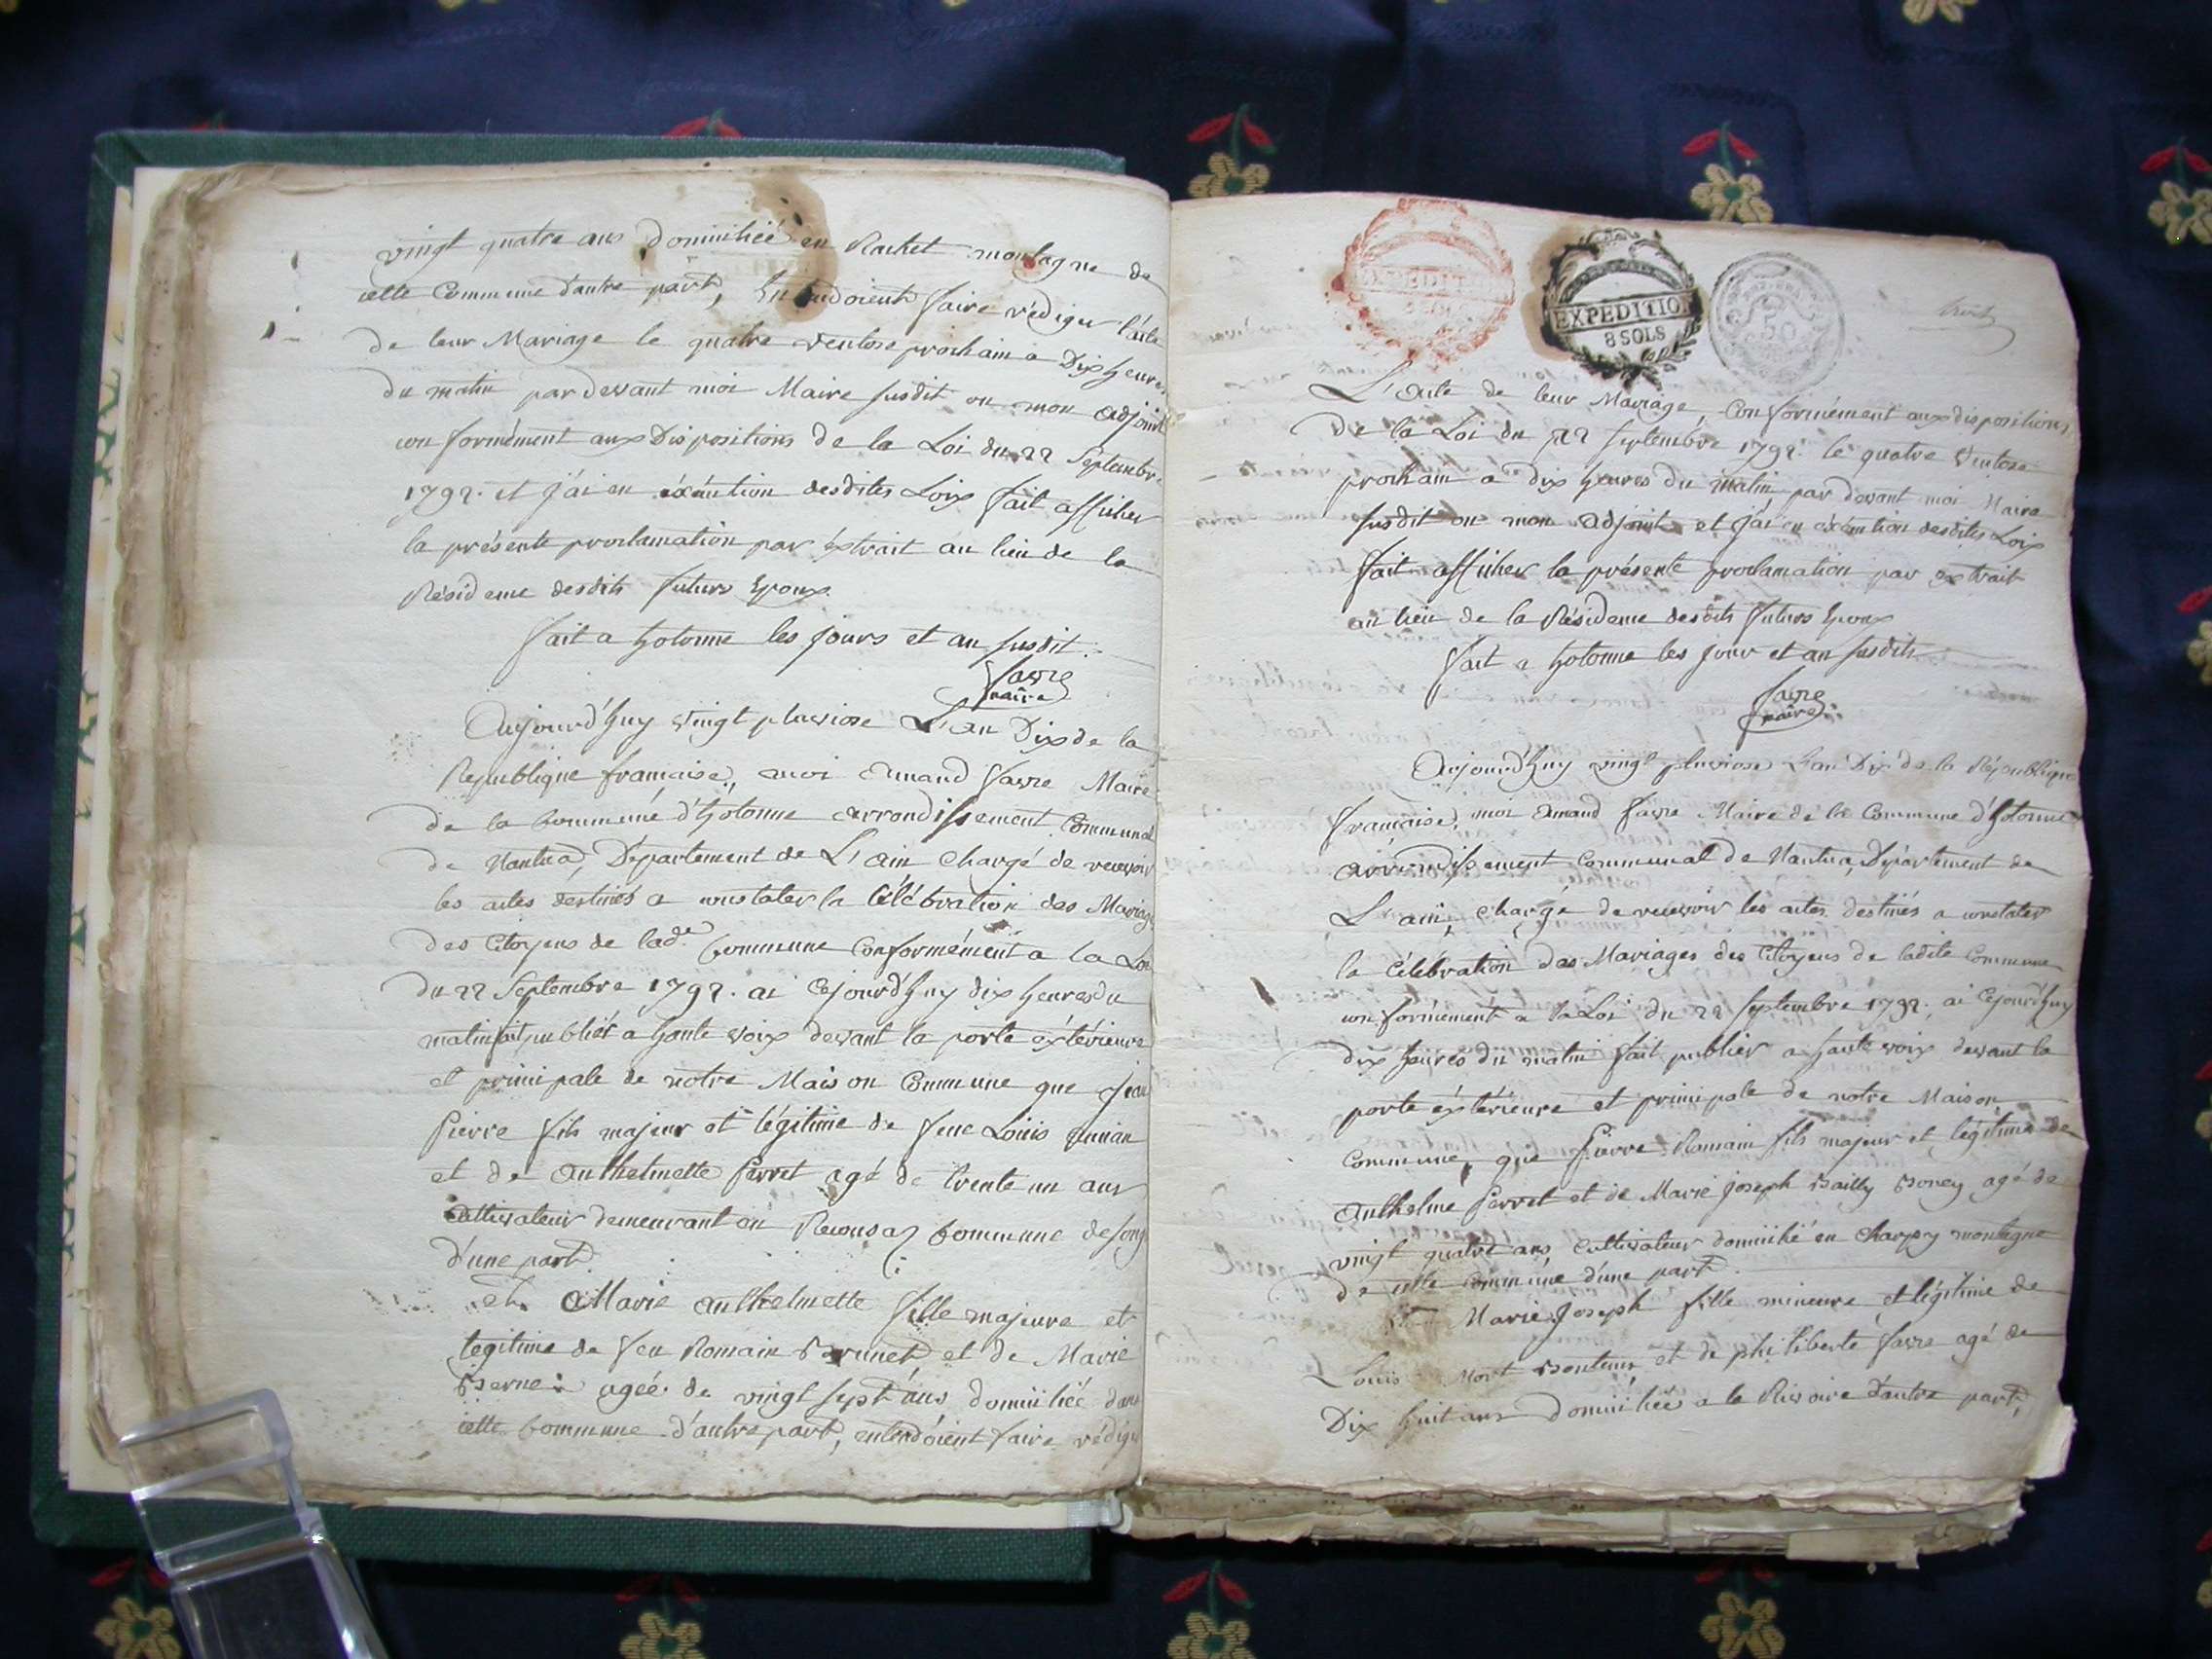 vingt quatre ans Domiciliée en Rachet montagne de
cette Commune d'autre part, Entendoient faire rédiger l'acte
de leur Mariage le quatre ventose prochain a Dix heures
du matin pardevant moi Maire susdit ou mon adjoint
conformément aux Dispositions de la Loi du 22 Septembre
1792. et j'ai en éxécution desdites Loix fait afficher
la présente proclamation par éxtrait au lieu de la
Résidence desdits futurs Epoux
fait a hotonne les jours et an susdit.
favre
maire
Aujourd'huy vingt pluviose L'an Dix de la
Republique francaise, moi Amand favre Maire
de la Commune d'hotonne arrondissement Communal
de Nantua, Département de L'ain Chargé de recevoir
les actes destinés a constater la Célébration des Mariages
des Citoyens de lad.e Commune Conformément a la Loi
du 22 Septembre 1792. ai Cejourd'huy dix heures du
matin fait publiér a haute voix devant la porte éxtérieure
et principale de notre Maison Commune que jean
Pierre fils majeur et légitime de feue Louis
et de Anthelmette Perret agé de trente un ans
Cultivateur demeurant en Commune de
d'une part.
et Marie Anthelmette fille majeure et
legitime de feu Romain Brunet et de Marie
agée de vingt sept ans domiciliée dans
cette Commune d'autre part, entendoient faire rédiger
EXPEDITION
EXPEDITION
8 SOLS
50
L'acte de leur Mariage, Conformément aux dispositions
De la Loi du 22 septembre 1792. le quatre Ventose
prochain a dix heures du matin par devant moi Maire
susdit ou mon adjoint et j'ai en éxécution desdites Loix
fait afficher la présente proclamation par extrait
au lieu de la Résidence desdits futurs Epoux
fait a hotonne les jour et an susdits
favre
maire
Aujourd'huy vingt pluviose L'an Dix de la République
francaise, moi Amand favre Maire de la Commune d'hotonne
arrondissement Communal de Nantua, Département de
L'ain, chargé de recevoir les actes destinés a constater
la Célébration des Mariages des Citoyens de ladite Commune
conformément a la Loi du 22 septembre 1792, ai Cejourd'huy
dix heures du matin fait publier a haute voix devant la
porte éxtérieure et principale de notre Maison
Commune, que Pierre Romain fils majeur et légitime de
Anthelme Perret et de Marie Joseph Bailly agé de
vingt quatre ans Cultivateur domicilié en Charpy montagne
de cette Commune d'une part.
et Marie Joseph fille mineure et légitime de
Louis Mort Bontems et de philiberte favre agé de
Dix huit ans Domiciliée a la Rivoire d'autre part,